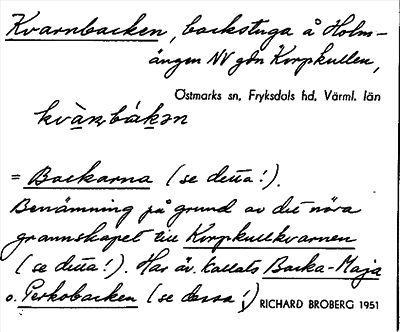 Kvarnbacken, backstuga å Holm-
ängen NV gdn Korpkullen,
Östmarks sn, Fryksdals hd, Värml. län
kvàn̥bákən
= Backarna (se detta!).
Benämning på grund av det nära
grannskapet till Korpkullkvarnen
(se detta!). Har äv. kallats Backa-Maja
o. Perkobacken (se dessa!)
RICHARD BROBERG 1951